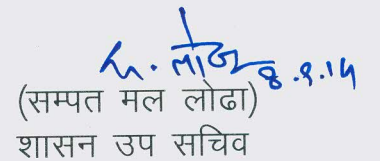 ८.१.१५
(सम्पत मल लोढा)
शासन उप सचिव